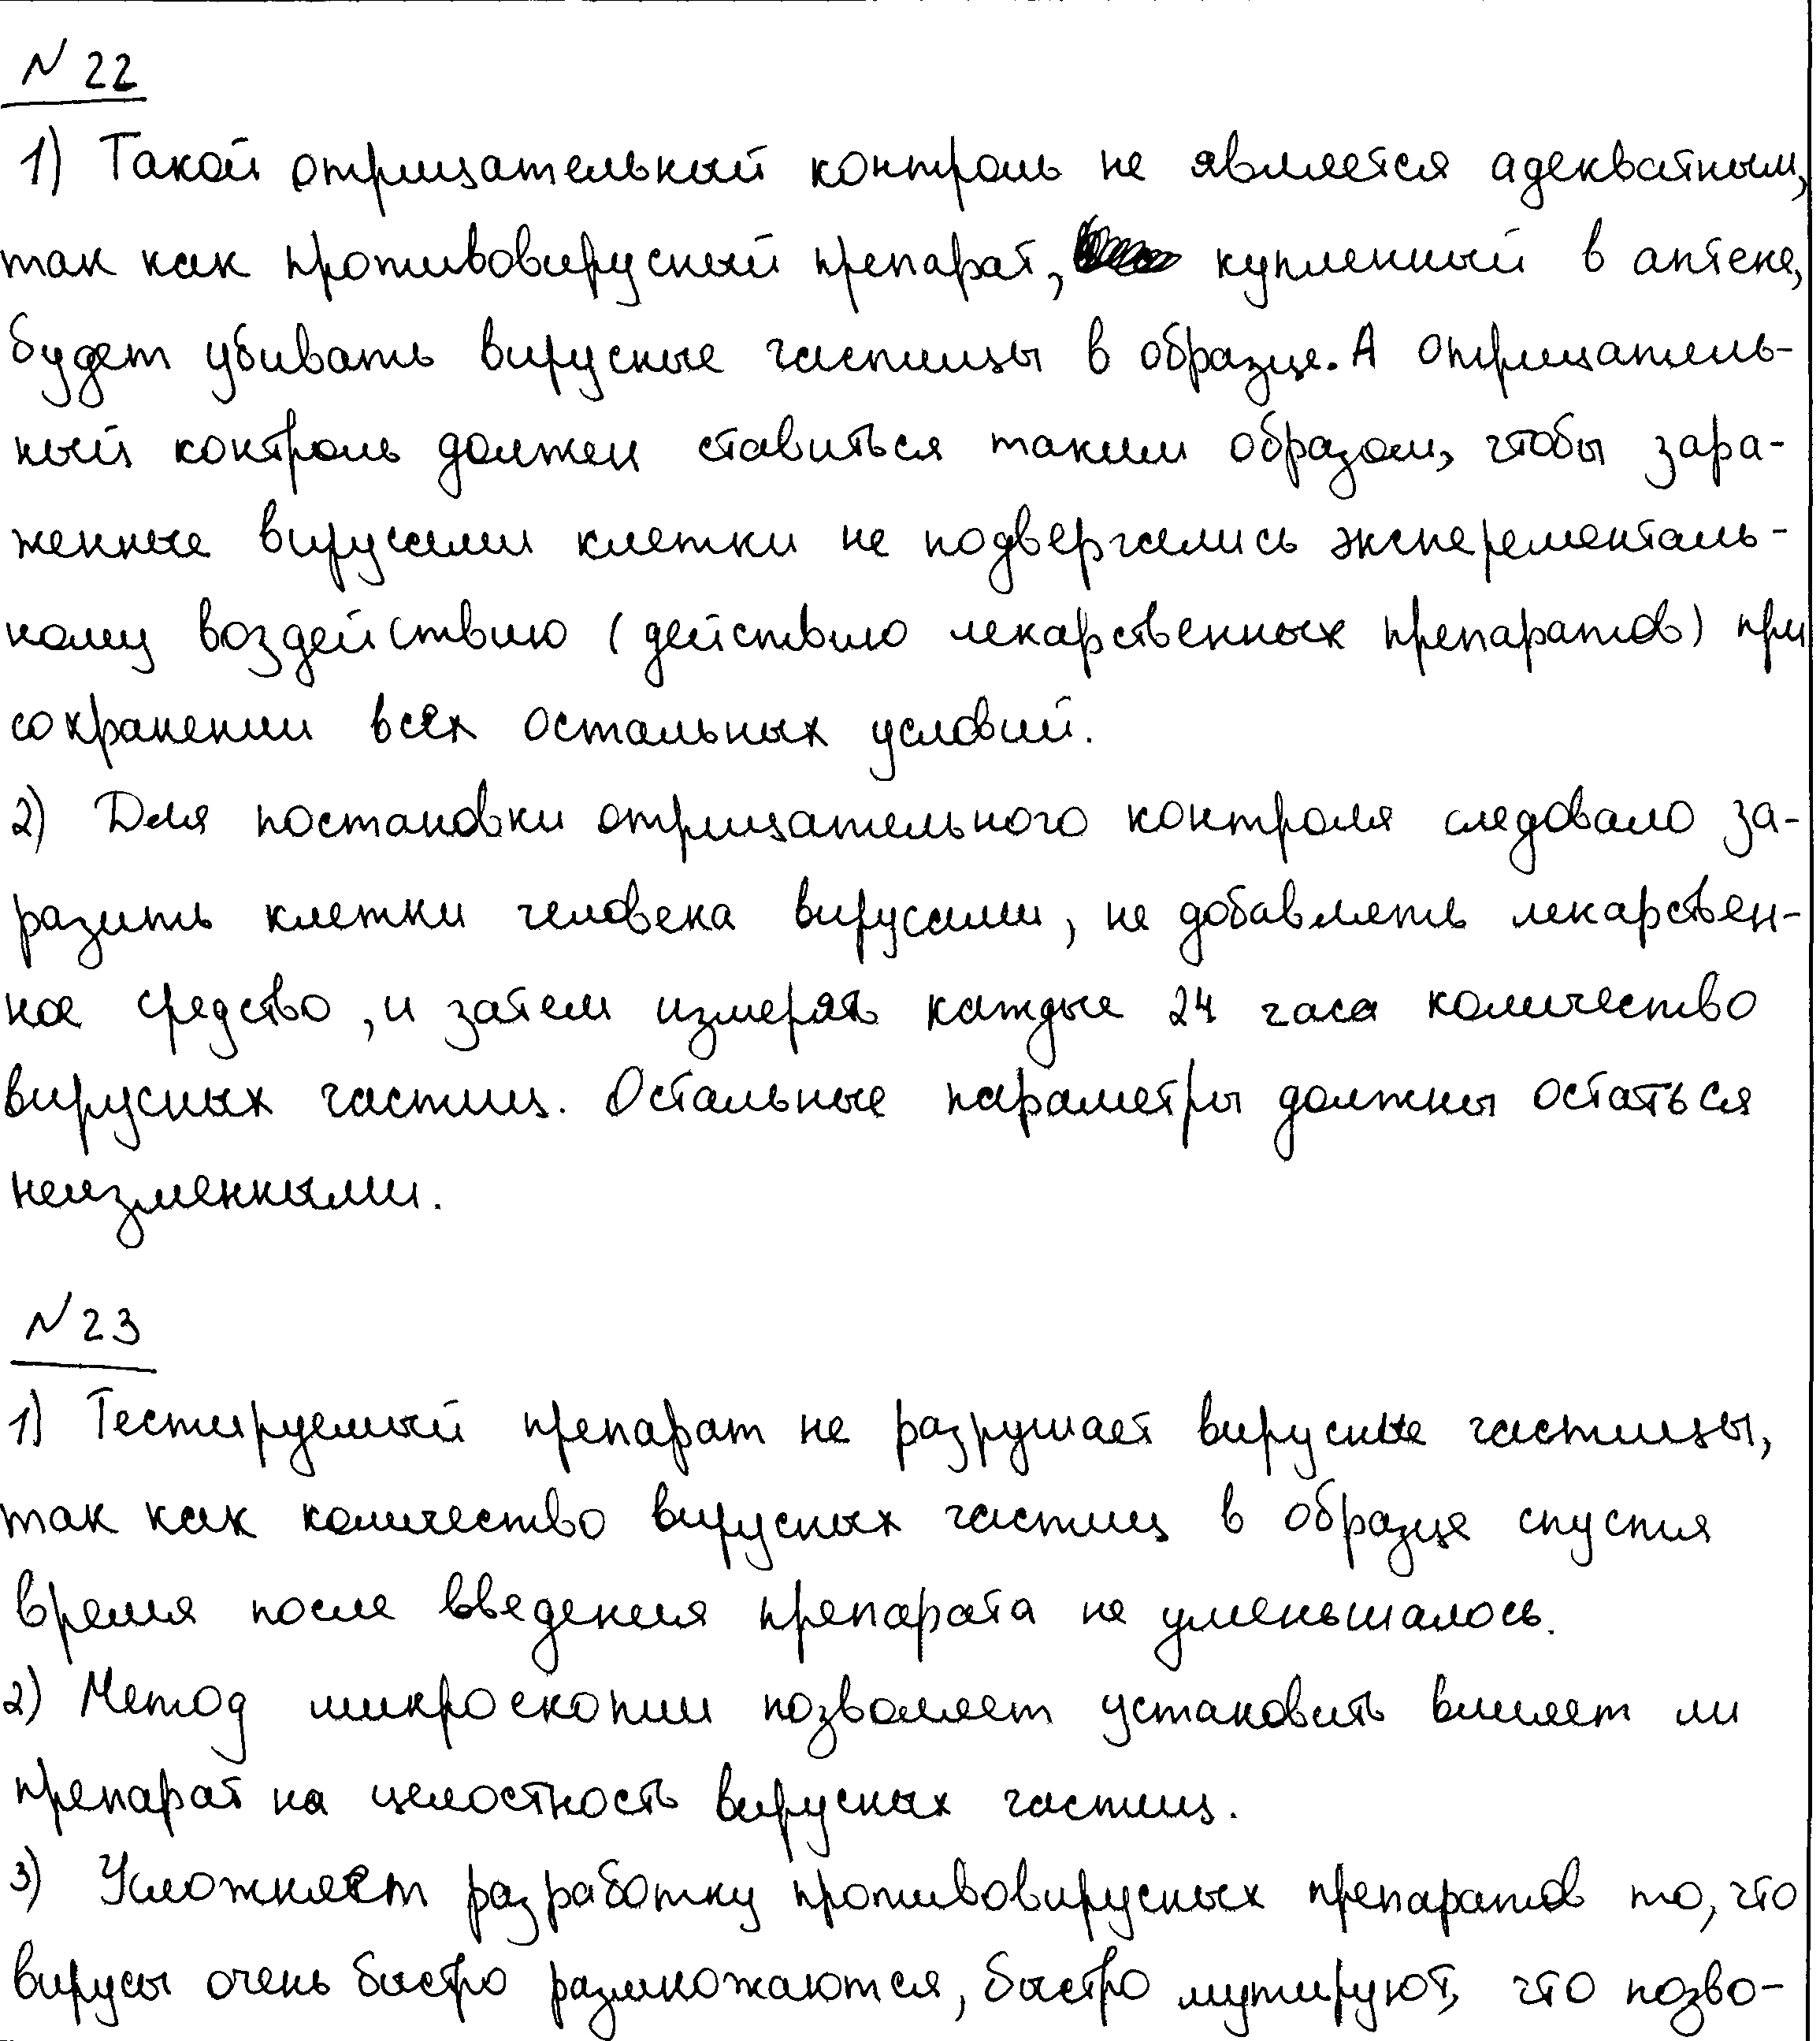 № 22
1) Такой отрицательный контроль не является адекватным,
так как противовирусный препарат, купленный в аптеке,
будет убивать вирусные частицы в образце. А отрицатель-
ный контроль должен ставиться таким образом, чтобы зара-
женные вирусами клетки не подвергались эксперементаль-
ному воздействию (действию лекарственных препаратов) при
сохранении всех остальных условий.
2) Для постановки отрицательного контроля следовало за-
разить клетки человека вирусами, не добавлять лекарствен-
ное средство, и затем измерять каждые 24 часа количество
вирусных частиц. Остальные параметры должны остаться
неизменными.
№ 23
1) Тестируемый препарат не разрушает вирусные частицы,
так как количество вирусных частиц в образце спустя
время после введения препарата не уменьшалось.
2) Метод микроскопии позволяет установить влияет ли
препарат на целостность вирусных частиц.
3) Усложняет разработку противовирусных препаратов то, что
вирусы очень быстро размножаются, быстро мутируют, что позво-